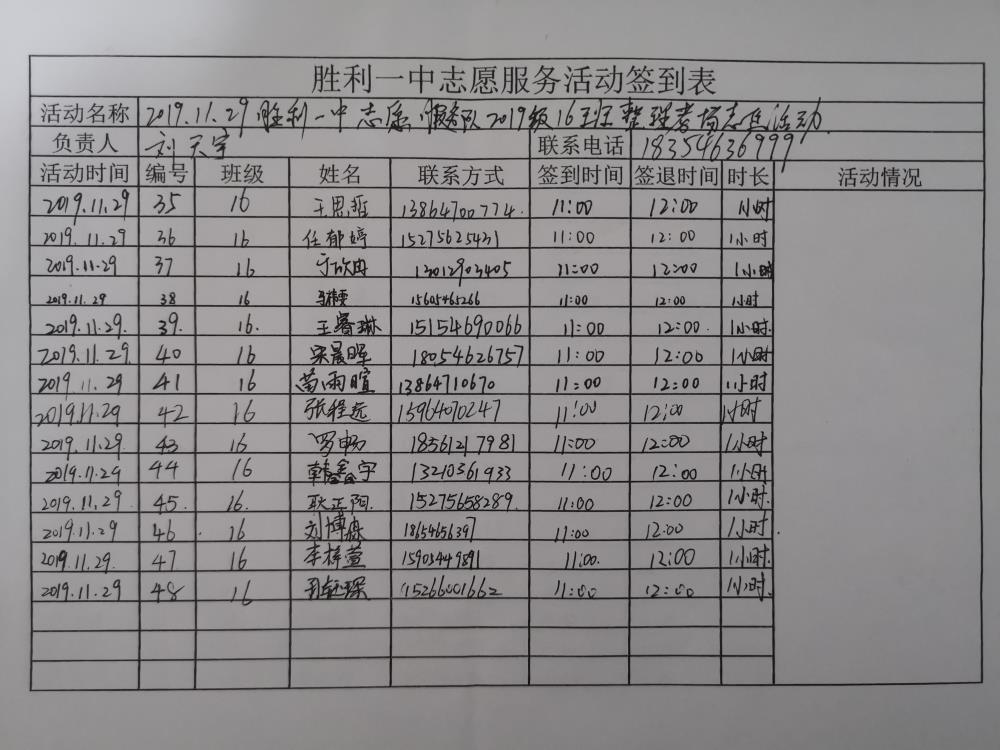 胜利一中志愿服务活动签到表
活动名称 2019.11.29胜利一中志愿服务队2019级16班整理考场志愿活动
负责人 刘天宇 联系电话 18354636999
活动时间 编号 班级 姓名 联系方式 签到时间 签退时间 时长 活动情况
2019.11.29 35 16 王思班 13864700774 11:00 12:00 1小时
2019.11.29 36 16 任郁婷 15275625431 11:00 12:00 1小时
2019.11.29 37 16 13012903405 11:00 12:00 1小时
2019.11.29 38 16 15605465266 11:00 12:00 1小时
2019.11.29. 39. 16. 王睿琳 15154690066 11:00 12:00. 1小时.
2019.11.29. 40 16 宋晨晖 18054626757 11:00 12:00 1小时
2019.11.29 41 16 苗雨暄 13864710670 11:00 12:00 1小时
2019.11.29 42 16 张程远 15964070247 11:00 12:00 1小时
2019.11.29 43 16 罗申易 18561217981 11:00 12:00 1小时
2019.11.29 44 16 韩鑫宇 13210361933 11:00 12:00 1小时
2019.11.29 45. 16. 耿正阳. 15275658289. 11:00 12:00 1小时.
2019.11.29 46 16 刘博森 18654656397 11:00 12:00 1小时.
2019.11.29. 47 16 李梓萱 15905449891 11:00. 12:00 1小时.
2019.11.29 48 16 15266001662 11:00 12:00 1小时.